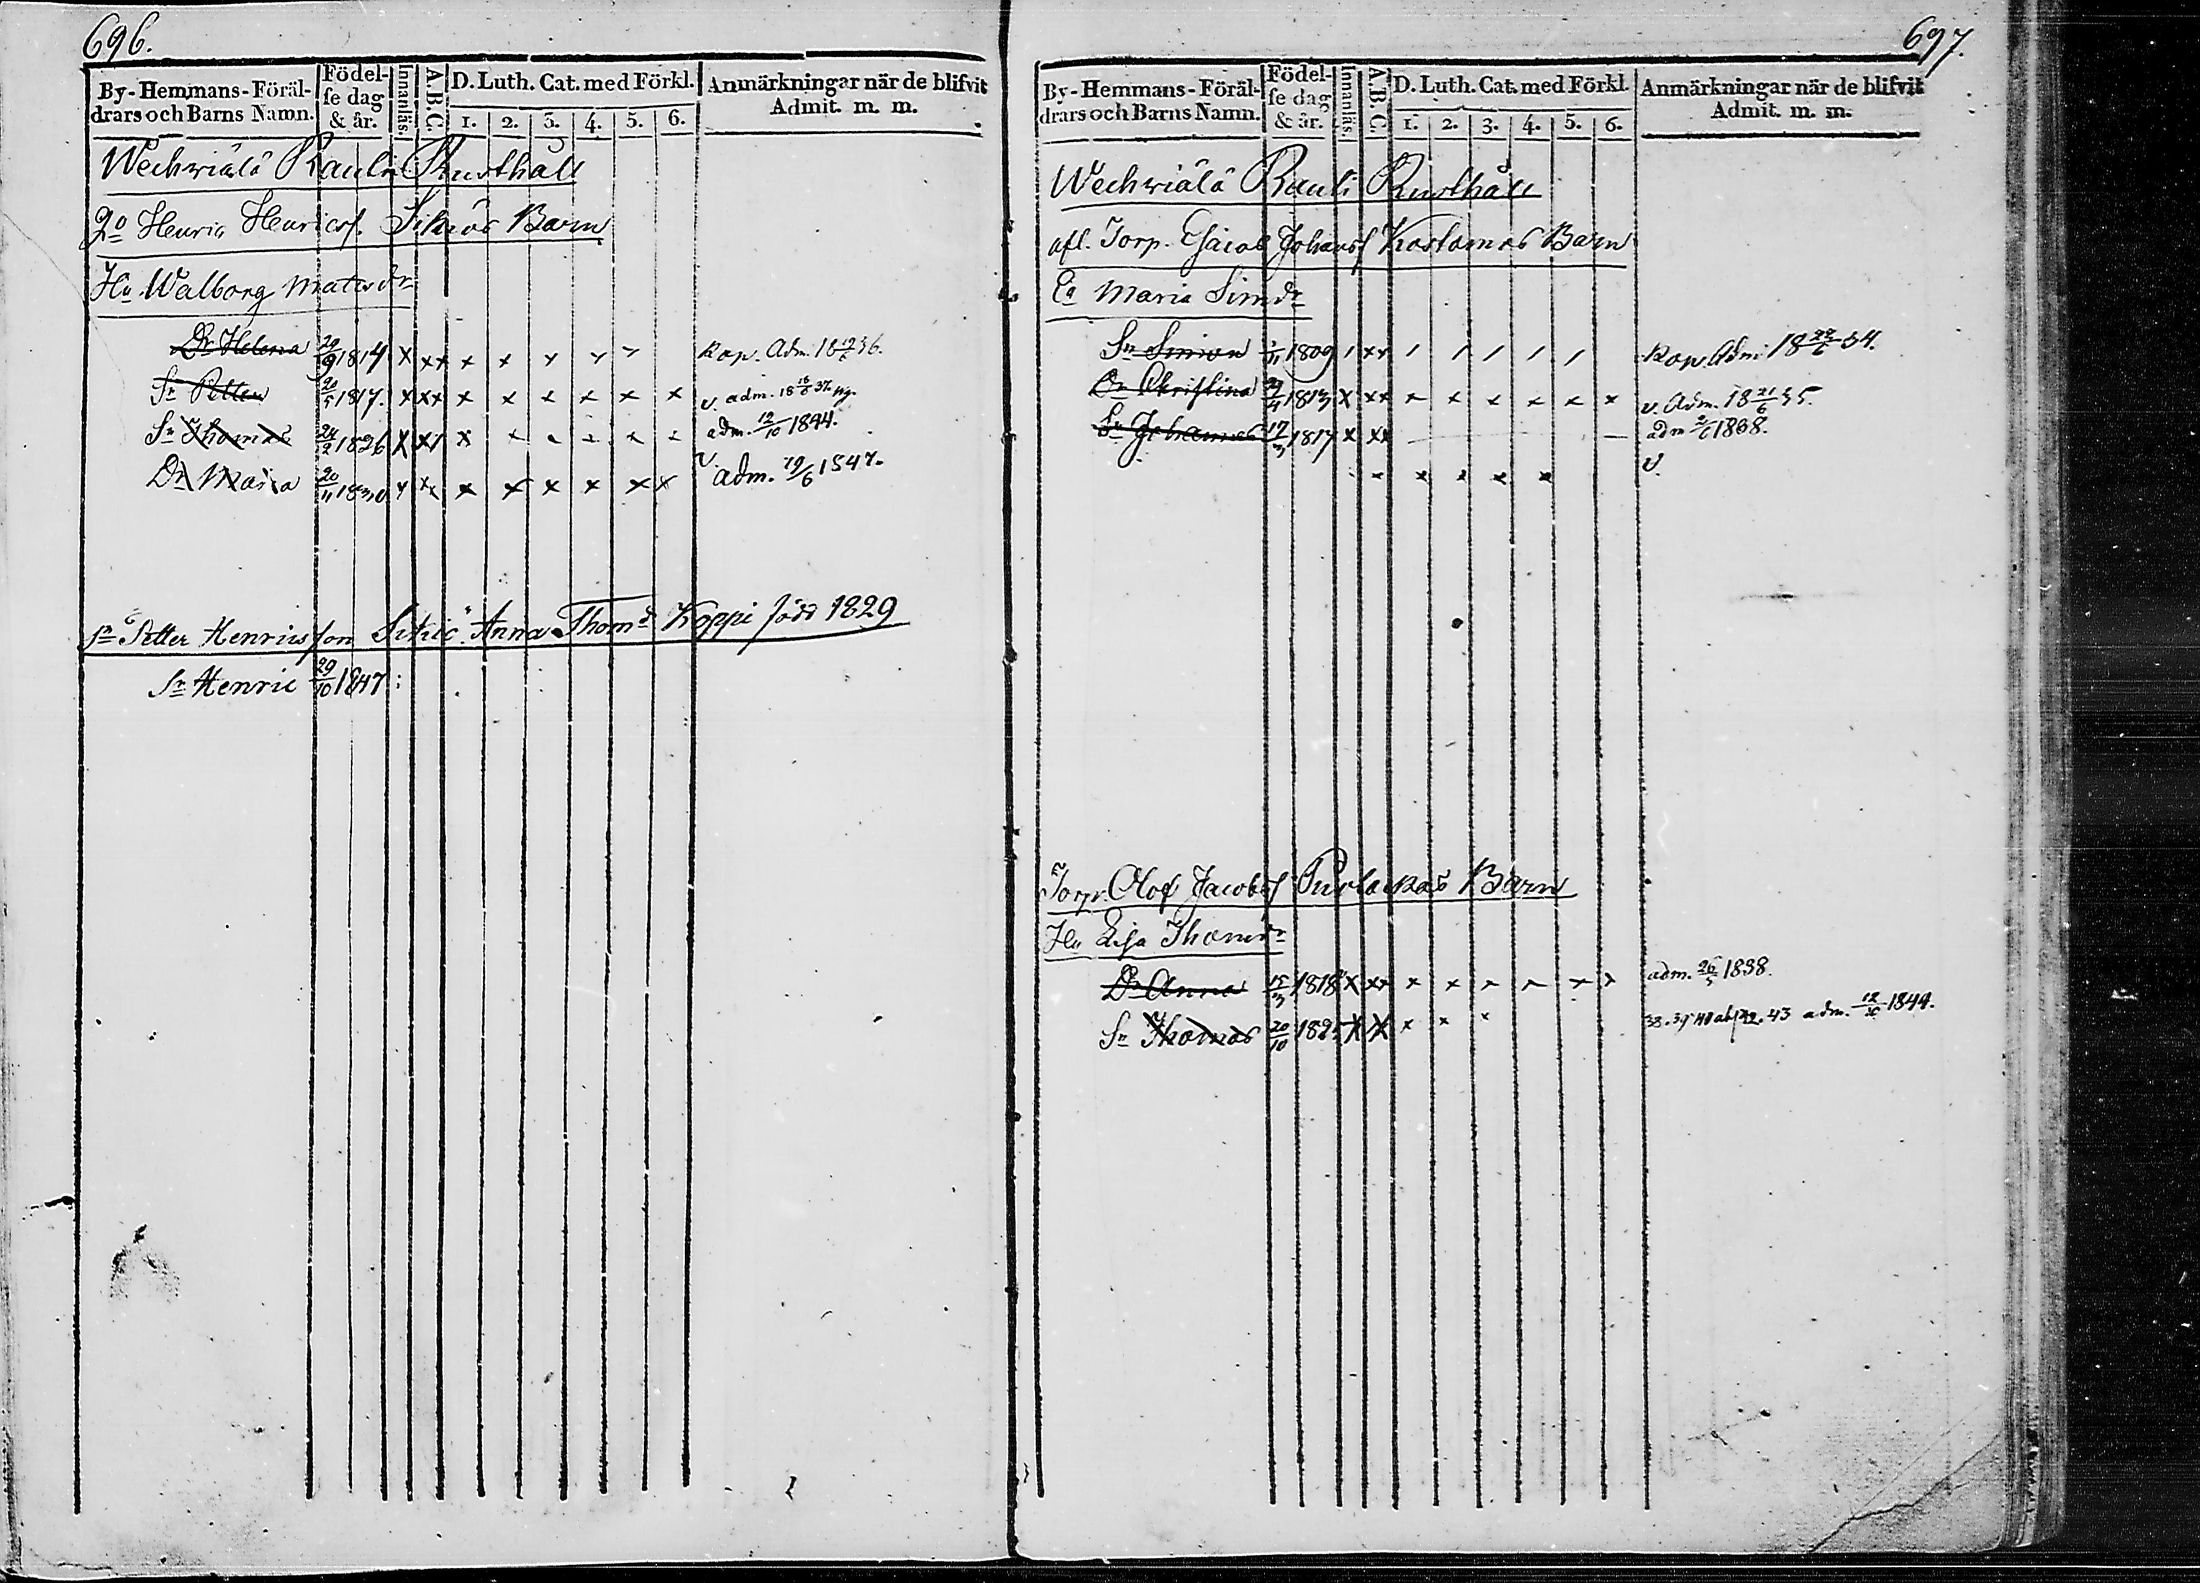 696.
By-Hemmans-Föräl-
drars och Barns Namn.
Födel-
se dag
& år.
Innanläs.
A.B.C.
D. Luth. Cat. med Förkl.
1. 2. 3. 4. 5. 6.
Anmärkningar när de blifvit
Admit. m. m.
Wechwiälä Rauli Rusthåll
2o Henric Henricsf. Barn
Hu Walborg Matsdr
Dr Helena 29/9 1814 x xx x x x x Kop. Adm. 18 36.
Sn Petter 20/5 1817. x xx x x x x x x v. adm. 18 18/6 37
Sn Thomas 24/2 1826 x x x x x x x adm. 12/10 1844.
Dr Maria 20/11 1830 x xx x x x x x x v. adm. 19/6 1847.
Sn Petter Henricsson Anna Thomd Koppi född 1829
Sn Henric 29/10 1847
697.
By-Hemmans-Föräl-
drars och Barns Namn.
Födel-
se dag
& år.
Innanläs.
A.B.C.
D. Luth. Cat. med Förkl.
1. 2. 3. 4. 5. 6.
Anmärkningar när de blifvit
Admit. m. m.
Wechwiälä Rauli Rusthåll
afl. Torp. Johansf Kostamos Barn
Ea Maria Simdr
Sn Simon 1809 / xx / / / / / Kop. Adm. 18 34.
Dr Christina 1813 x xx x x x x x x v. Adm. 18 21/6 35.
Sn Johannes 17/3 1817 x xx adm 1838.
x x x x x v.
Torp. Olof Jacobsf Barn
Hu Lisa Thomdr
Dr Anna 15/3 1818 x xx x x x x x x adm. 26/5 1838.
Sn Thomas 20/10 1825 x x x x x 38. 39 40 42. 43 adm. 12/10 1844.